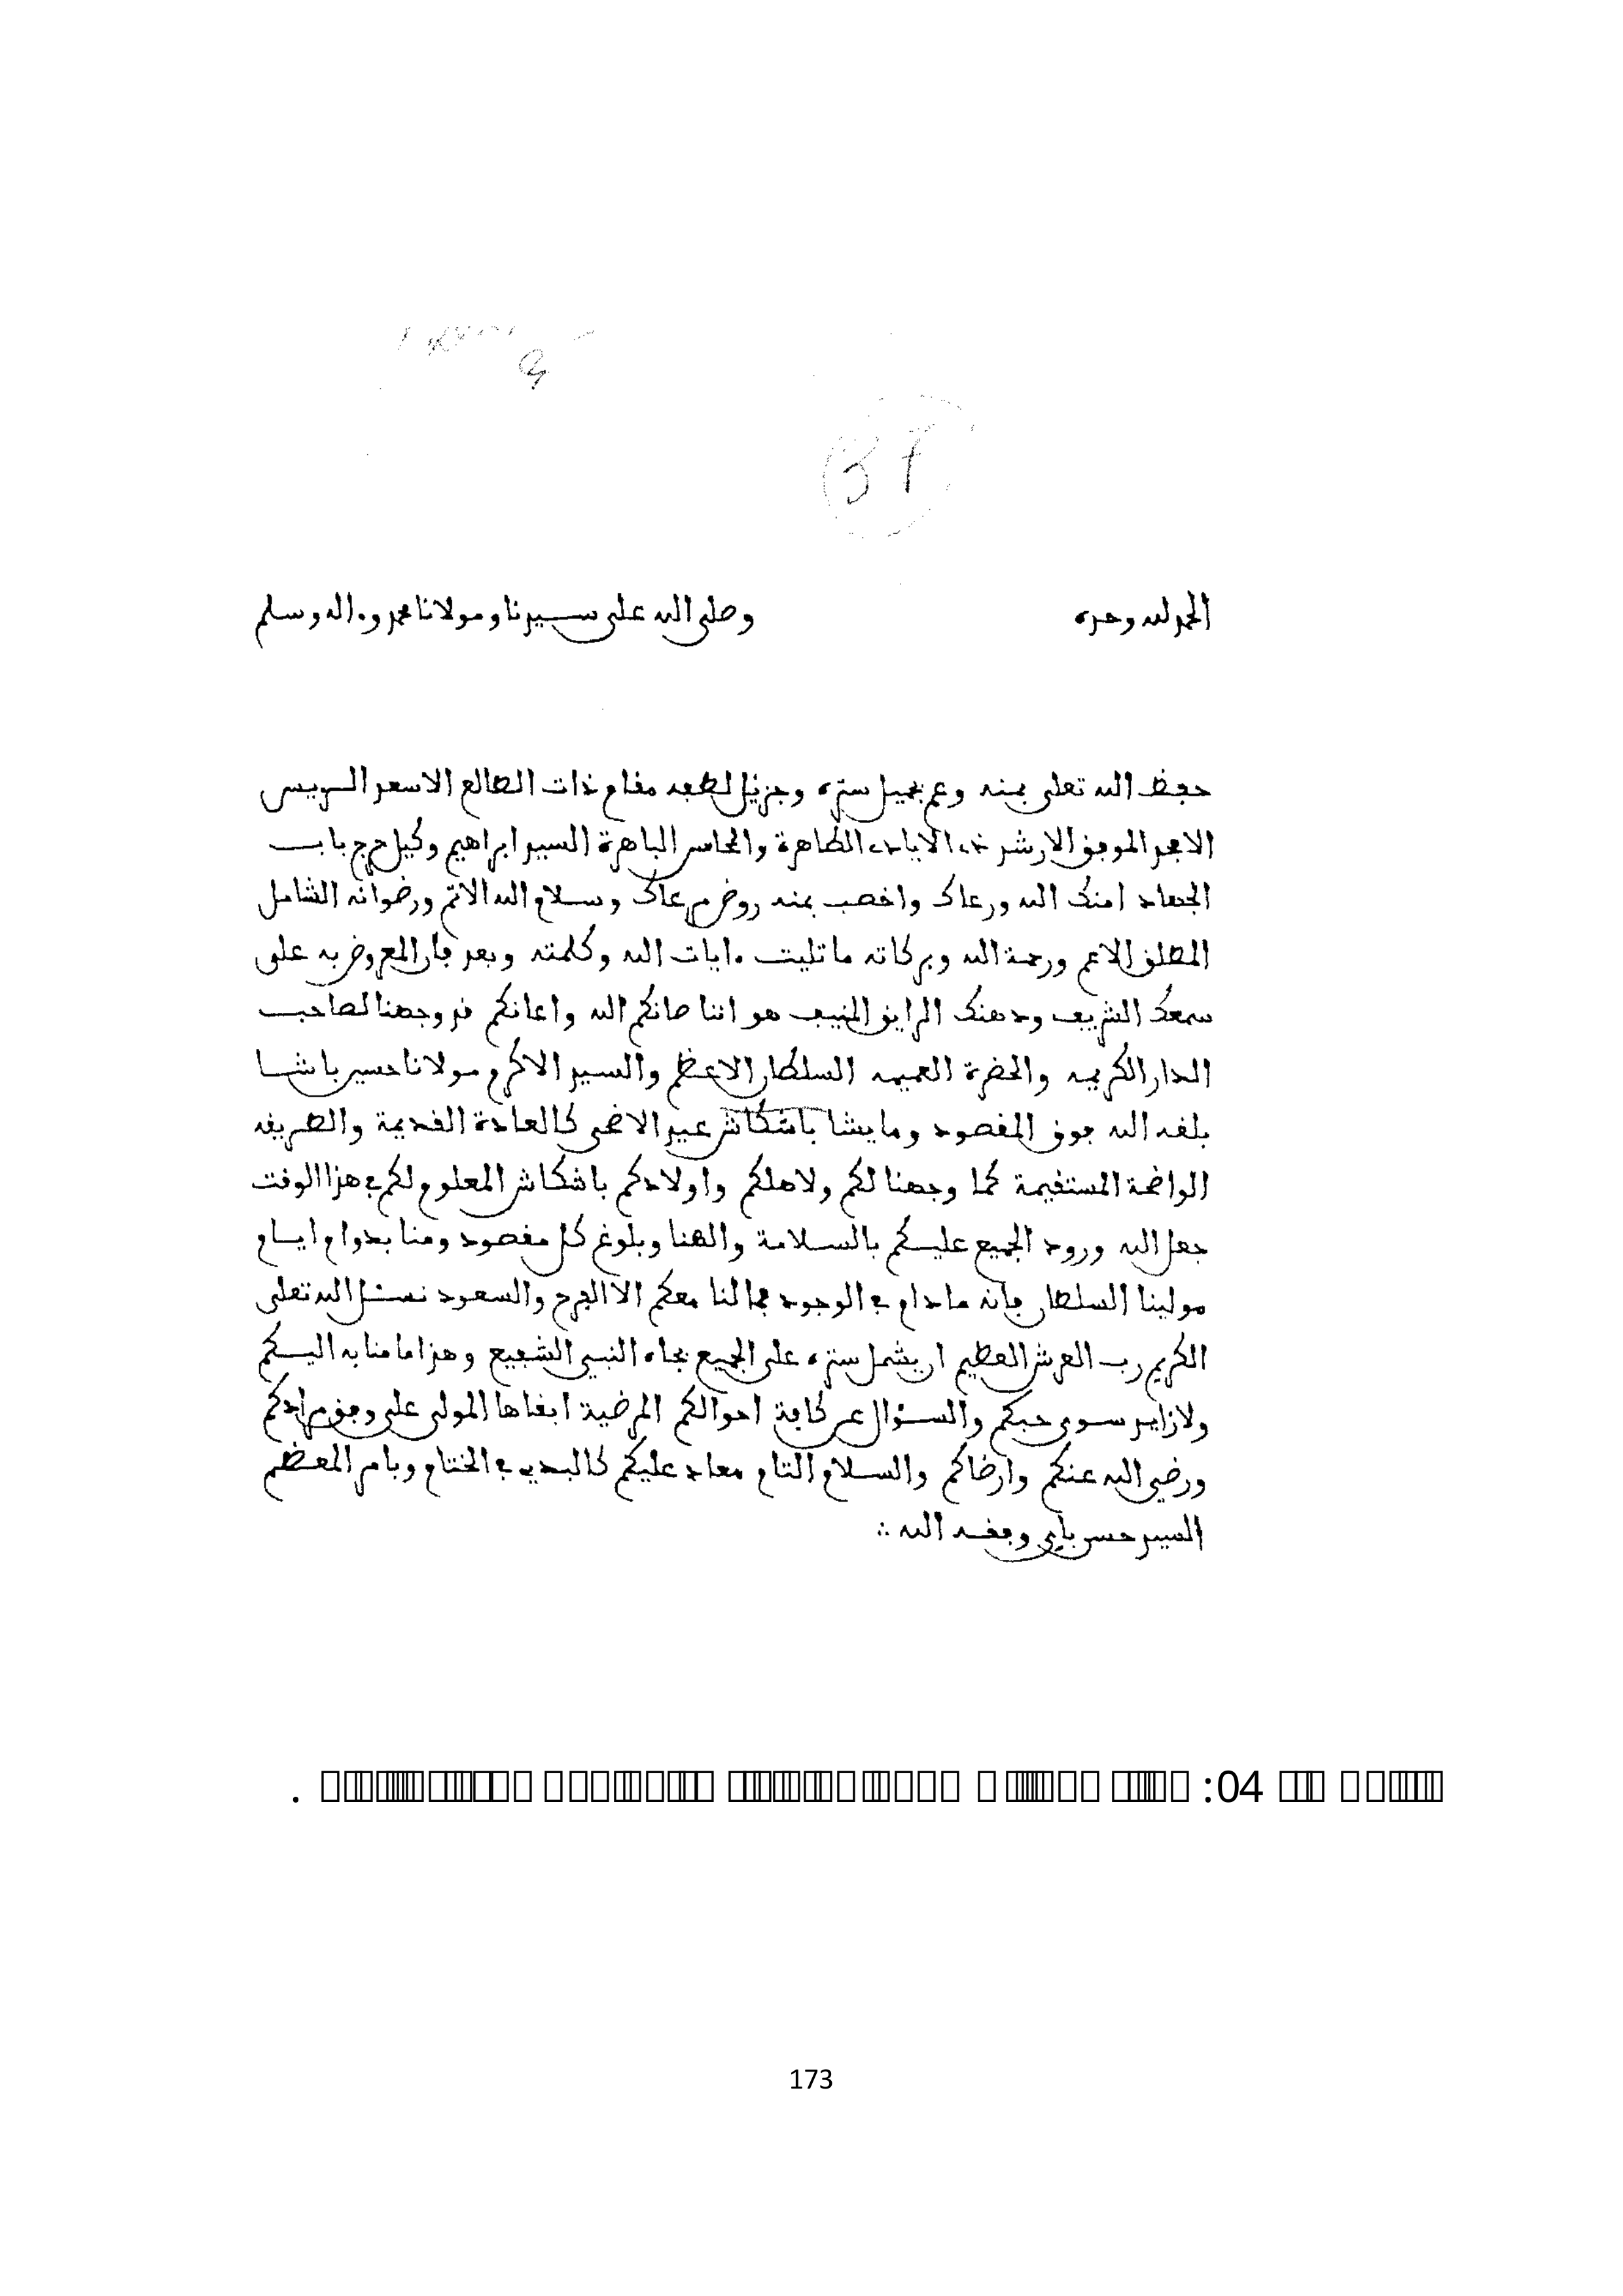 37
الحمد لله وحده وصلى الله على سيدنا ومولانا محمد وءاله وسلم
حفظ الله تعلى بمنه وعم بجميل ستره وجزيل لطفه مقام ذات الطالع الاسعد الرييس
الامجد الموفق الارشد ذي الايادي الظاهرة والمحاسن الباهرة السيد ابراهيم وكيل حرج باب
الجهاد امنك الله ورعاك واخصب بمنه روض مرعاك وسلام الله الاتم ورضوانه الشامل
المطلق الاعم ورحمة الله وبركاته ما تليت ءايات الله وكلمته وبعد فان المعروض به على
سمعك الشريف وذهنك الرايق المنيف هو اننا صانكم الله واعانكم قد وجهنا لصاحب
الدار الكريمه والحضرة العميمه السلطان الاعظم والسيد الاكرم مولانا حسين باشا
بلغه الله فوق المقصود وما يشا باشكاش عيد الاضحى كالعادة القديمة والطريقه
الواضحة المستقيمة كما وجهنا لكم ولاهلكم واولادكم باشكاش المعلوم لكم في هذا الوقت
جعل الله ورود الجميع عليكم بالسلامة والهنا وبلوغ كل مقصود ومنا بدوام ايام
مولينا السلطان فانه مادام في الوجود فمالنا معكم الا الفرح والسعود نسئل الله تعلى
الكريم رب العرش العظيم ان يشمل ستره على الجميع بجاه النبي الشفيع وهذا ما منا به اليكم
ولا زايد سوى حبكم والسؤال عن كافة احوالكم المرضية ابقاها المولى على وفق مرادكم
ورضي الله عنكم وارضاكم والسلام التام معاد عليكم كالبدء في الختام وبامر المعظم
السيد حسن باي وفقه الله
04:
173